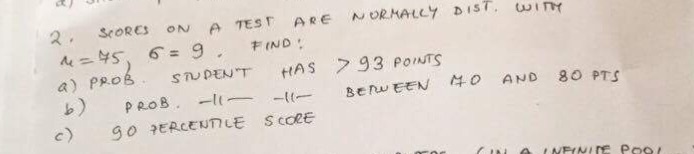 2. SCORES ON A TEST ARE NORMALLY DIST. WITH
μ = 75, σ = 9. FIND:
a) PROB. STUDENT HAS > 93 POINTS
b) PROB. -11- -11- BETWEEN 70 AND 80 PTS
c) 90 PERCENTILE SCORE
(IN A INFINITE POOL